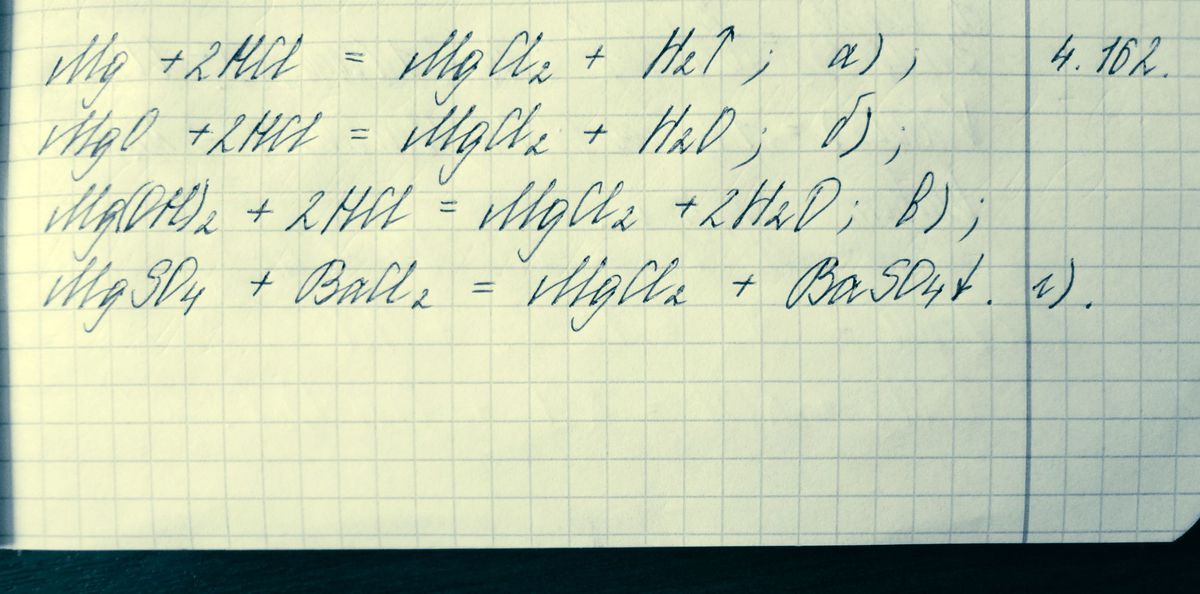 Mg + 2HCl = MgCl₂ + H₂↑; а); 4.162.
MgO + 2HCl = MgCl₂ + H₂O; б);
Mg(OH)₂ + 2HCl = MgCl₂ + 2H₂O; в);
MgSO₄ + BaCl₂ = MgCl₂ + BaSO₄↓. г).